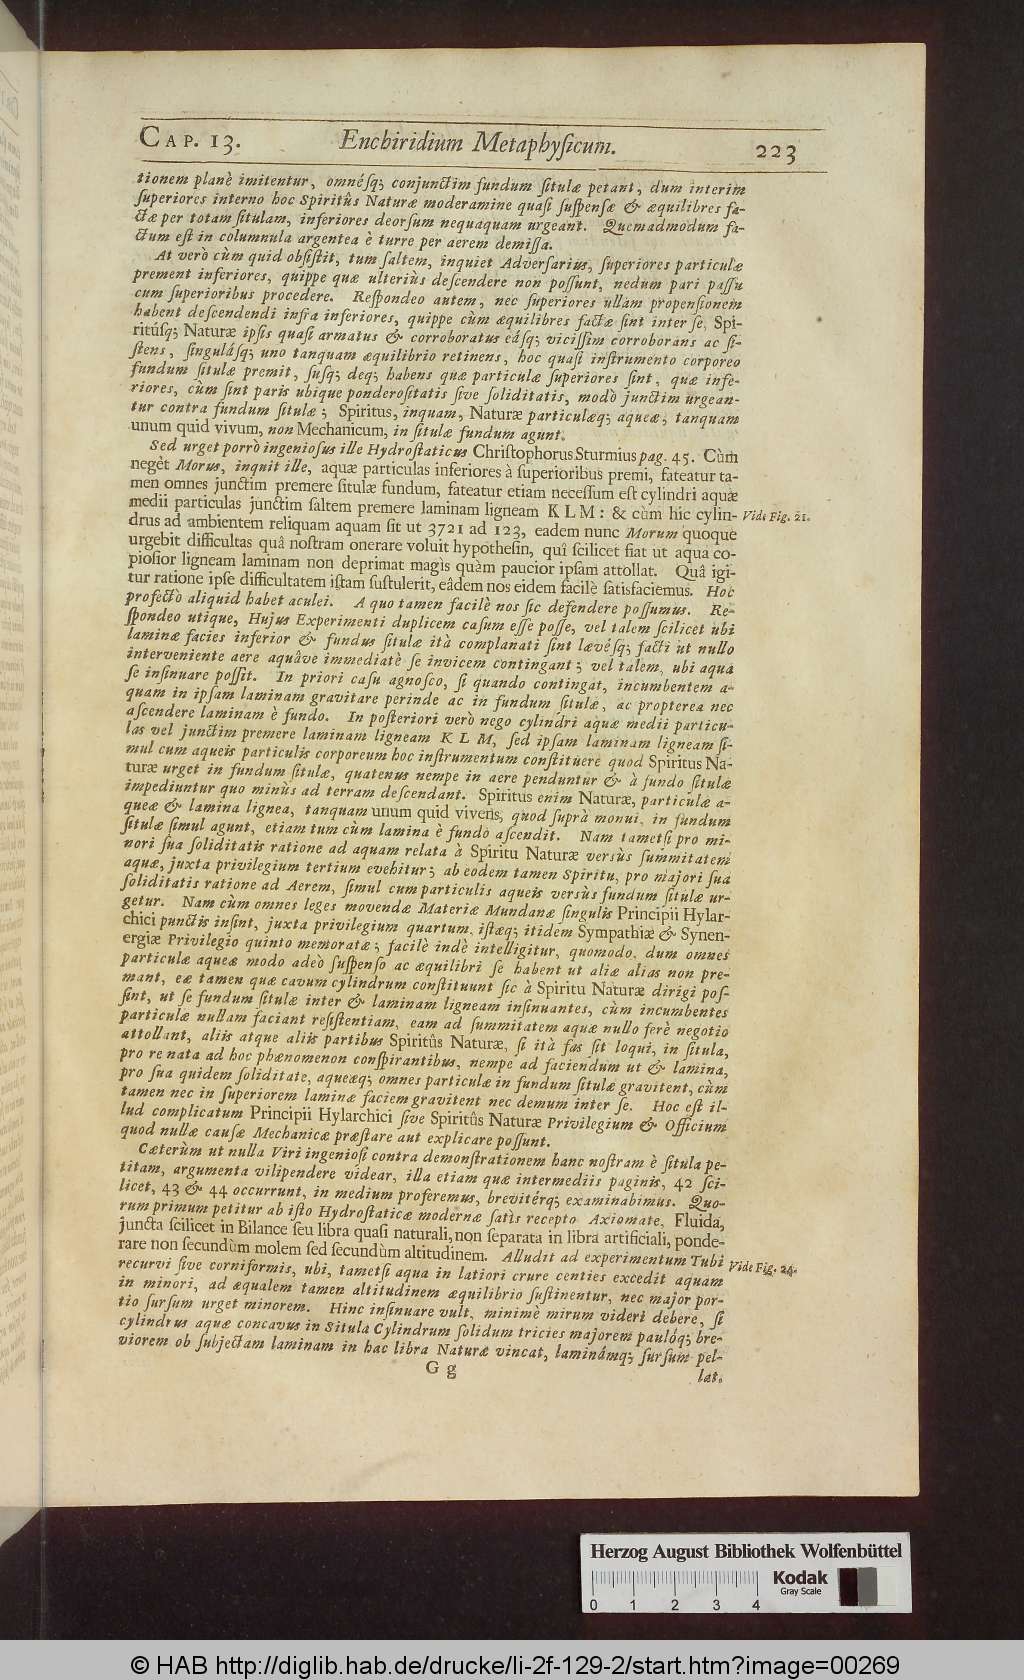 CAP. 13. Enchiridium Metaphysicum. 223
tionem planè imitentur, omnésq; conjunctim fundum ſitulæ petant, dum interim
ſuperiores interno hoc Spiritûs Naturæ moderamine quaſi ſuſpenſæ & æquilibres fa-
ctæ per totam ſitulam, inferiores deorſum nequaquam urgeant. Quemadmodum fa-
ctum eſt in columnula argentea è turre per aerem demiſſa.
At verò cùm quid obſiſtit, tum ſaltem, inquiet Adverſarius, ſuperiores particulæ
prement inferiores, quippe quæ ulteriùs deſcendere non poſſunt, nedum pari paſſu
cum ſuperioribus procedere. Reſpondeo autem, nec ſuperiores ullam propenſionem
habent deſcendendi infra inferiores, quippe cùm æquilibres factæ ſint inter ſe, Spi-
ritúſq; Naturæ ipſis quaſi armatus & corroboratus eáſq; viciſſim corroborans ac ſi-
ſtens, ſinguláſq; uno tanquam æquilibrio retinens, hoc quaſi inſtrumento corporeo
fundum ſitulæ premit, ſuſq; deq; habens quæ particulæ ſuperiores ſint, quæ infe-
riores, cùm ſint paris ubique ponderoſitatis ſive ſoliditatis, modò junctim urgean-
tur contra fundum ſitulæ; Spiritus, inquam, Naturæ particulæq; aqueæ, tanquam
unum quid vivum, non Mechanicum, in ſitulæ fundum agunt.
Sed urget porrò ingenioſus ille Hydroſtaticus Chriſtophorus Sturmius pag. 45. Cùm
negèt Morus, inquit ille, aquæ particulas inferiores à ſuperioribus premi, fateatur ta-
men omnes junctim premere ſitulæ fundum, fateatur etiam neceſſum eſt cylindri aquæ
medii particulas junctim ſaltem premere laminam ligneam K L M: & cùm hic cylin-
Vide Fig. 21.
drus ad ambientem reliquam aquam ſit ut 3721 ad 123, eadem nunc Morum quoque
urgebit difficultas quâ noſtram onerare voluit hypotheſin, quî ſcilicet fiat ut aqua co-
pioſior ligneam laminam non deprimat magis quàm paucior ipſam attollat. Quâ igi-
tur ratione ipſe difficultatem iſtam ſuſtulerit, eâdem nos eidem facilè ſatisfaciemus. Hoc
profectò aliquid habet aculei. A quo tamen facilè nos ſic defendere poſſumus. Re-
ſpondeo utique, Hujus Experimenti duplicem caſum eſſe poſſe, vel talem ſcilicet ubi
laminæ facies inferior & fundus ſitulæ ità complanati ſint lævéſq; facti ut nullo
interveniente aere aquâve immediatè ſe invicem contingant; vel talem, ubi aqua
ſe inſinuare poſſit. In priori caſu agnoſco, ſi quando contingat, incumbentem a-
quam in ipſam laminam gravitare perinde ac in fundum ſitulæ, ac propterea nec
aſcendere laminam è fundo. In poſteriori verò nego cylindri aquæ medii particu-
las vel junctim premere laminam ligneam K L M, ſed ipſam laminam ligneam ſi-
mul cum aqueis particulis corporeum hoc inſtrumentum conſtituere quod Spiritus Na-
turæ urget in fundum ſitulæ, quatenus nempe in aere penduntur & à fundo ſitulæ
impediuntur quo minùs ad terram deſcendant. Spiritus enim Naturæ, particulæ a-
queæ & lamina lignea, tanquam unum quid vivens, quod ſuprà monui, in fundum
ſitulæ ſimul agunt, etiam tum cùm lamina è fundo aſcendit. Nam tametſi pro mi-
nori ſua ſoliditatis ratione ad aquam relata à Spiritu Naturæ verſùs ſummitatem
aquæ, juxta privilegium tertium evehitur; ab eodem tamen Spiritu, pro majori ſua
ſoliditatis ratione ad Aerem, ſimul cum particulis aqueis verſùs fundum ſitulæ ur-
getur. Nam cùm omnes leges movendæ Materiæ Mundanæ ſingulis Principii Hylar-
chici punctis inſint, juxta privilegium quartum, iſtæq; itidem Sympathiæ & Synen-
ergiæ Privilegio quinto memoratæ; facilè indè intelligitur, quomodo, dum omnes
particulæ aqueæ modo adeò ſuſpenſo ac æquilibri ſe habent ut aliæ alias non pre-
mant, eæ tamen quæ cavum cylindrum conſtituunt ſic à Spiritu Naturæ dirigi poſ-
ſint, ut ſe fundum ſitulæ inter & laminam ligneam inſinuantes, cùm incumbentes
particulæ nullam faciant reſiſtentiam, eam ad ſummitatem aquæ nullo ferè negotio
attollant, aliis atque aliis partibus Spiritûs Naturæ, ſi ità fas ſit loqui, in ſitula,
pro re nata ad hoc phænomenon conſpirantibus, nempe ad faciendum ut & lamina,
pro ſua quidem ſoliditate, aqueæq; omnes particulæ in fundum ſitulæ gravitent, cùm
tamen nec in ſuperiorem laminæ faciem gravitent nec demum inter ſe. Hoc eſt il-
lud complicatum Principii Hylarchici ſive Spiritûs Naturæ Privilegium & Officium
quod nullæ cauſæ Mechanicæ præſtare aut explicare poſſunt.
Cæterùm ut nulla Viri ingenioſi contra demonſtrationem hanc noſtram è ſitula pe-
titam, argumenta vilipendere videar, illa etiam quæ intermediis paginis, 42 ſci-
licet, 43 & 44 occurrunt, in medium proferemus, brevitérq; examinabimus. Quo-
rum primum petitur ab iſto Hydroſtaticæ modernæ ſatìs recepto Axiomate, Fluida,
juncta ſcilicet in Bilance ſeu libra quaſi naturali, non ſeparata in libra artificiali, ponde-
rare non ſecundùm molem ſed ſecundùm altitudinem. Alludit ad experimentum Tubi
Vide Fig. 24.
recurvi ſive corniformis, ubi, tametſi aqua in latiori crure centies excedit aquam
in minori, ad æqualem tamen altitudinem æquilibrio ſuſtinentur, nec major por-
tio ſurſum urget minorem. Hinc inſinuare vult, minimè mirum videri debere, ſi
cylindrus aquæ concavus in Situla Cylindrum ſolidum tricies majorem paulóq; bre-
viorem ob ſubjectam laminam in hac libra Naturæ vincat, laminámq; ſurſum pel-
G g
lat.
Herzog August Bibliothek Wolfenbüttel
Kodak
Gray Scale
0 1 2 3 4
© HAB http://diglib.hab.de/drucke/li-2f-129-2/start.htm?image=00269